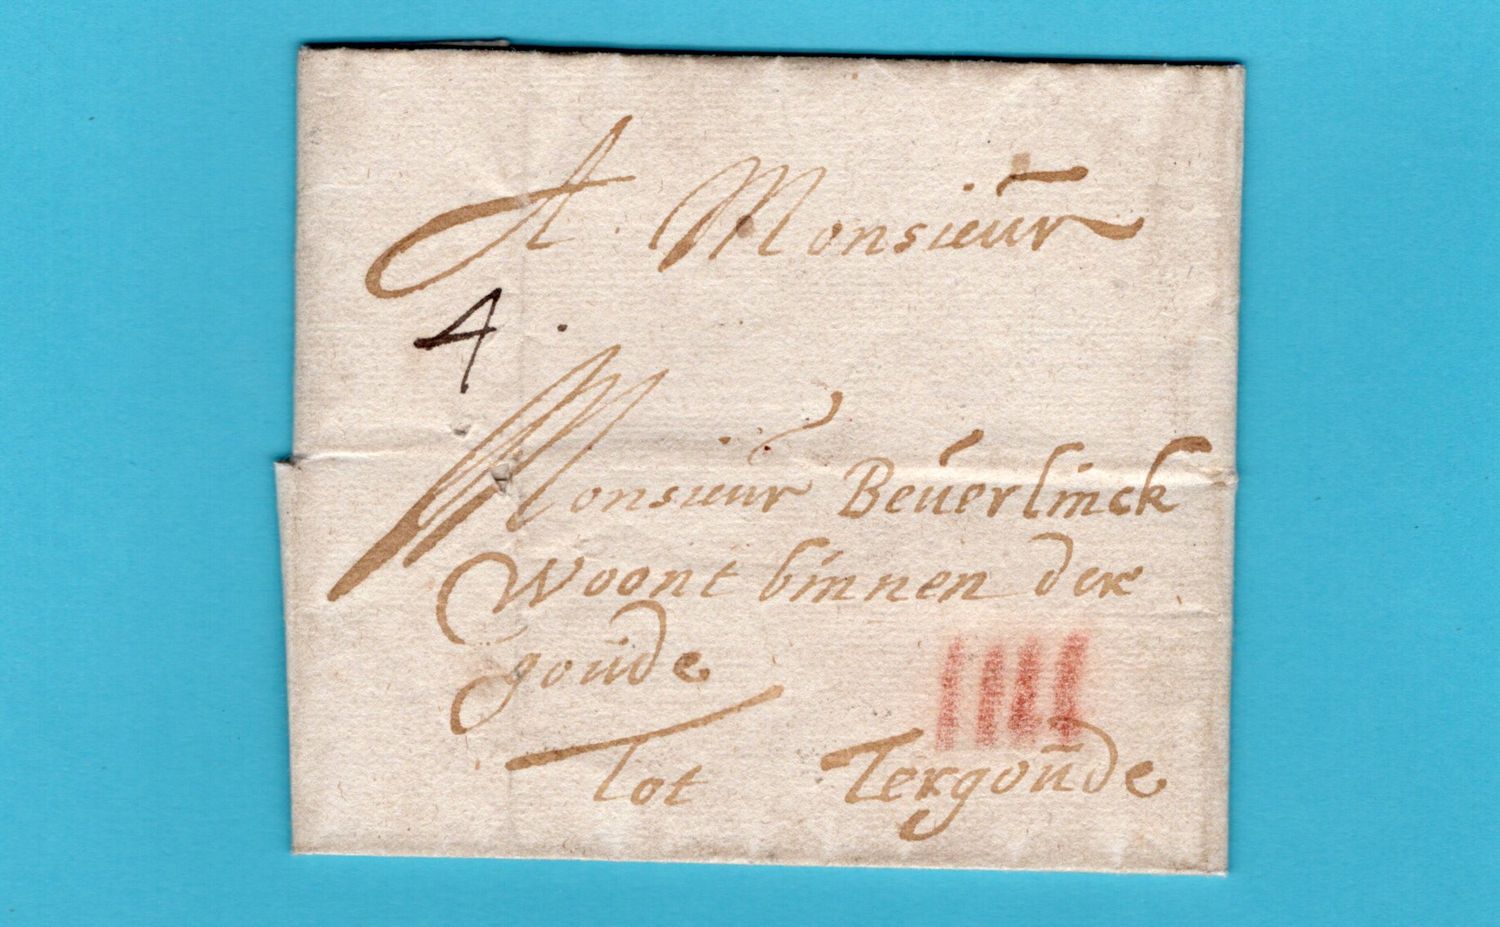 A Monsieur
4
Monsieur Beúerlinck
Woont binnen der
goúde
Tot Tergoúde
IIII